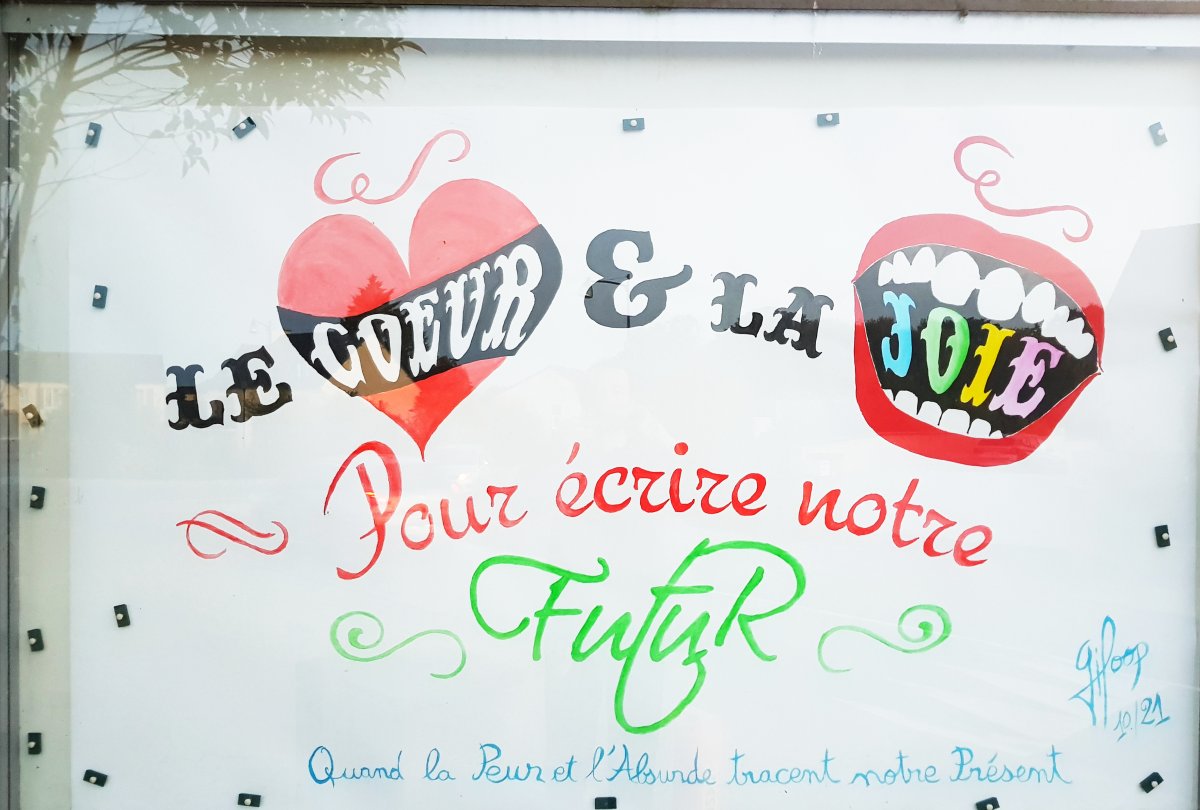 LE COEUR & LA JOIE
Pour écrire notre
FutuR
gifoop
10/21
Quand la Peur et l'Absurde tracent notre Présent